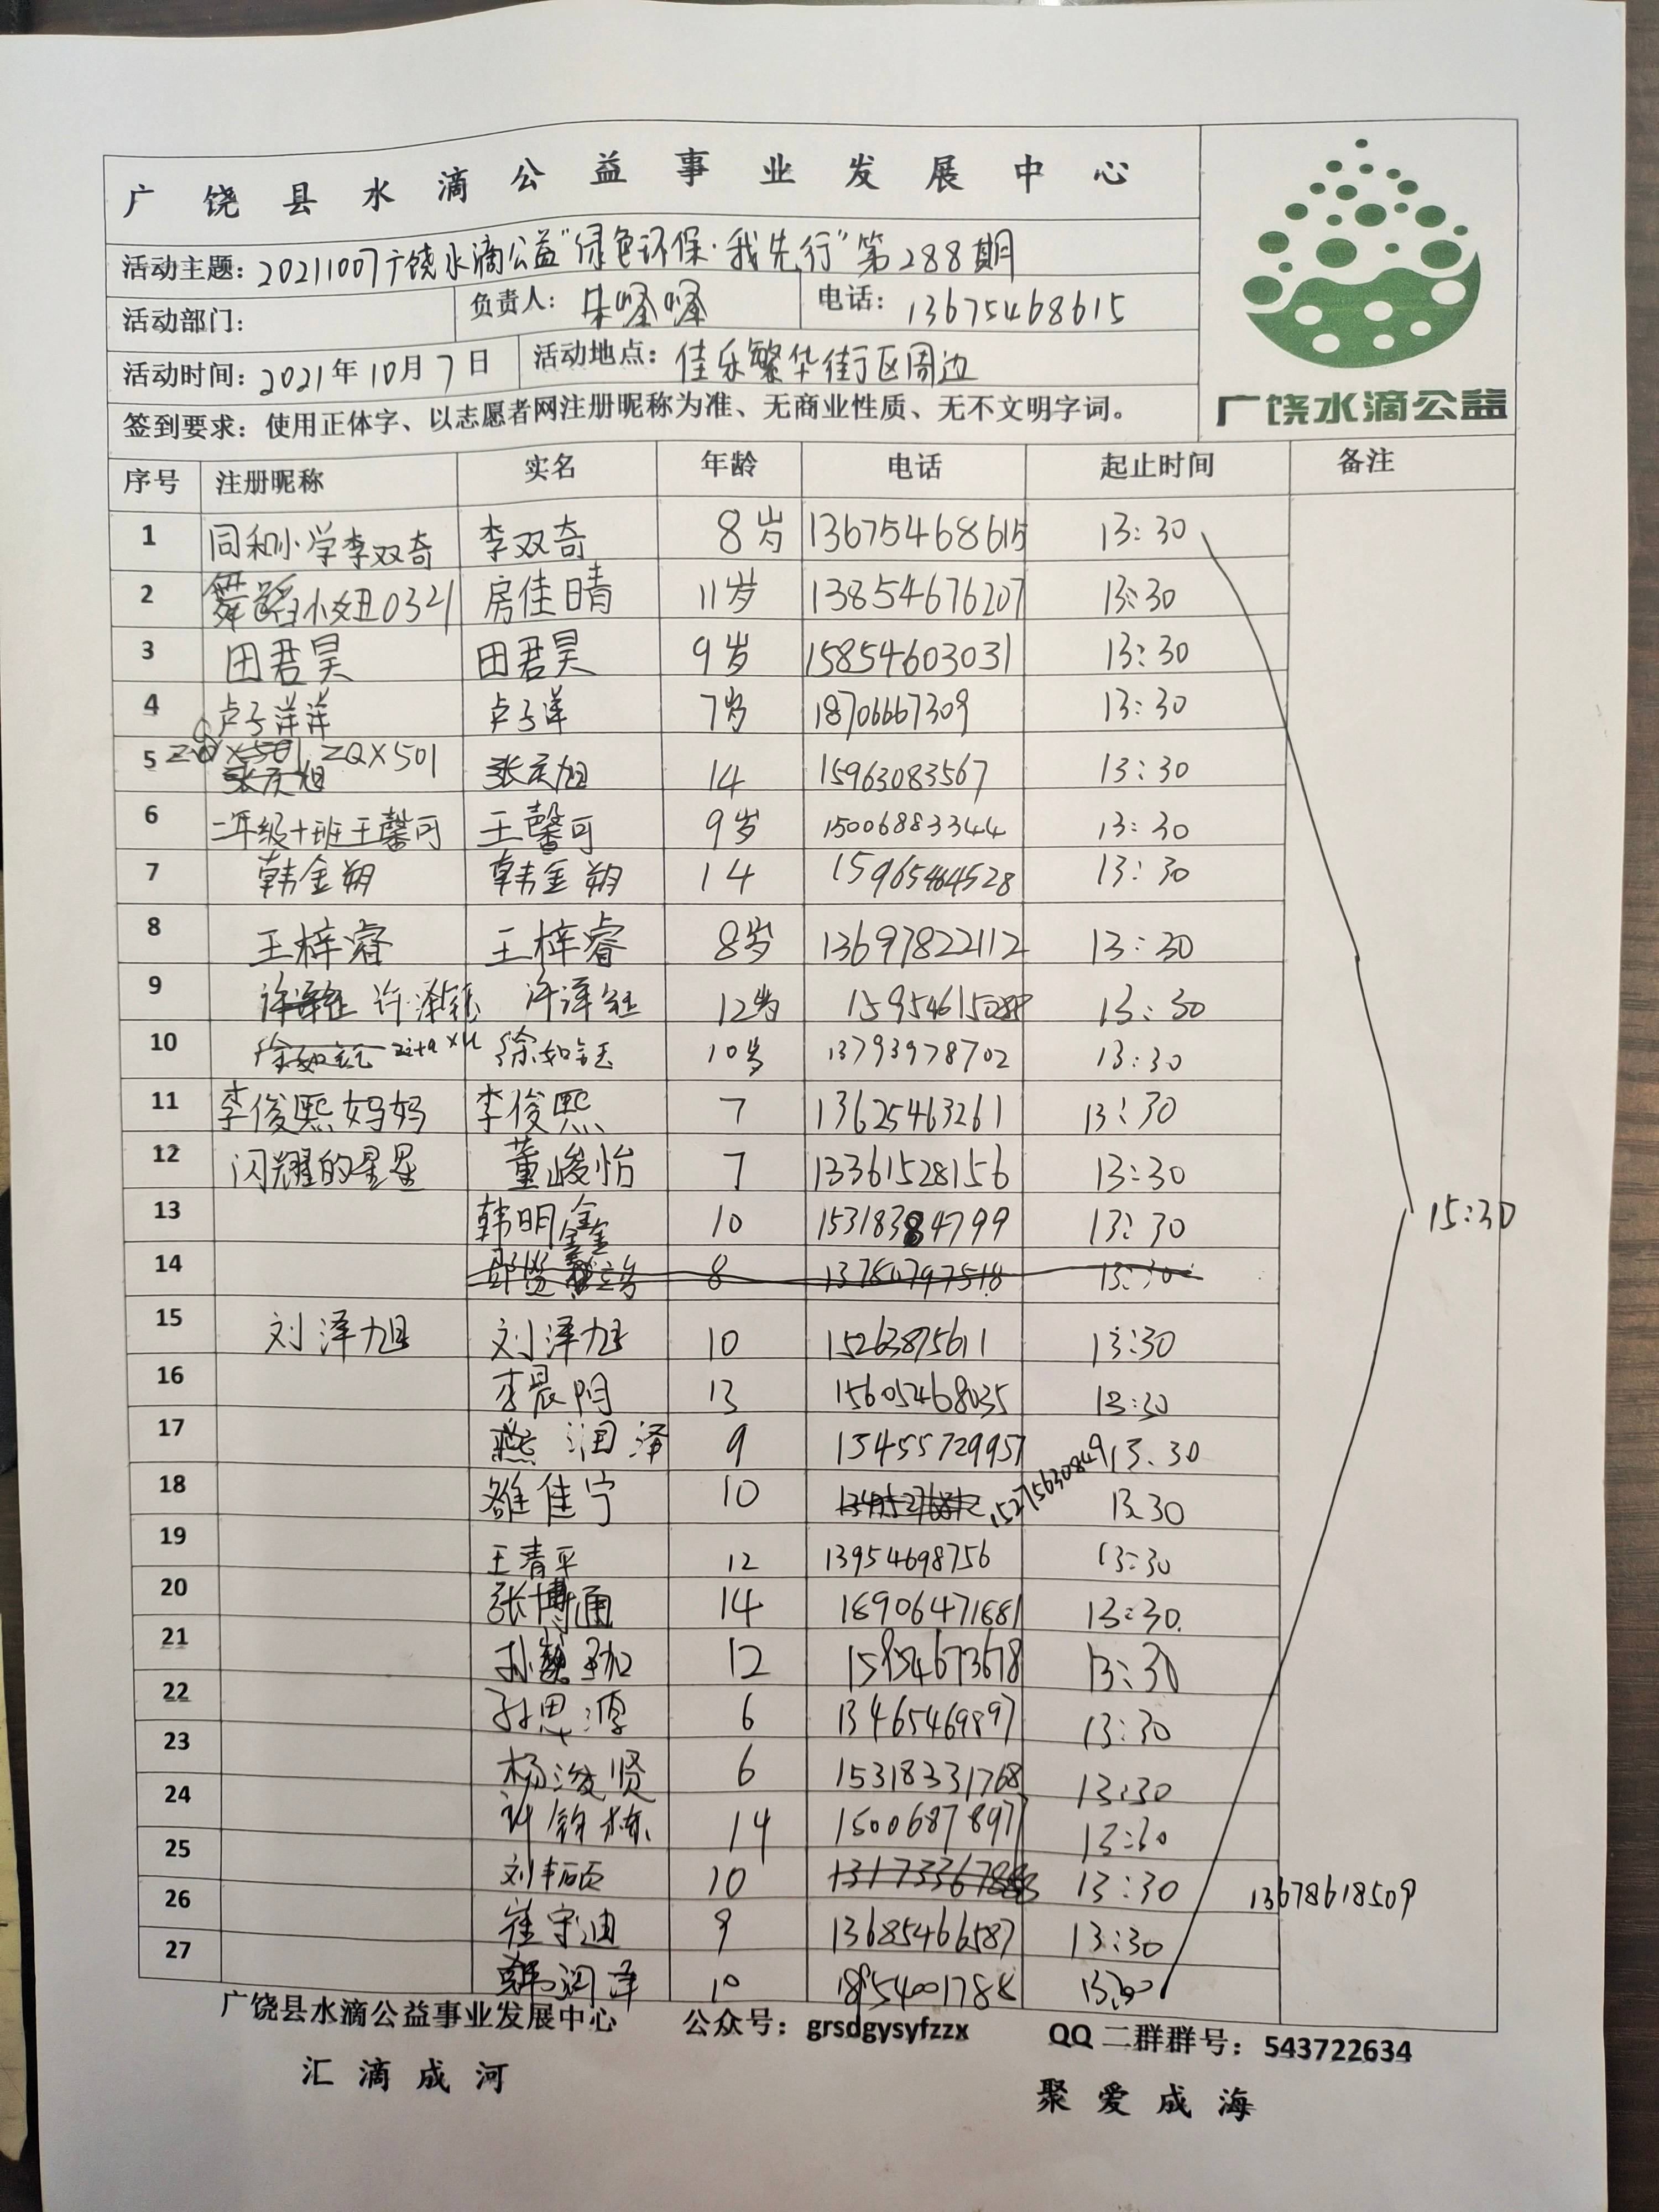 广饶县水滴公益事业发展中心
活动主题：20211007广饶水滴公益"绿色环保·我先行"第288期
活动部门： 负责人： 电话：13675468615
活动时间：2021年10月7日 活动地点：佳乐繁华街区周边
签到要求：使用正体字、以志愿者网注册昵称为准、无商业性质、无不文明字词。
广饶水滴公益
序号 注册昵称 实名 年龄 电话 起止时间 备注
1 同和小学李双奇 李双奇 8岁 13675468615 13:30
2 舞蹈小妞0321 房佳晴 11岁 13854676207 13:30
3 田君昊 田君昊 9岁 15854603031 13:30
4 卢子洋洋 卢子洋 7岁 18706667309 13:30
5 ZQX501 张庆旭 14 15963083567 13:30
6 二年级十班王馨可 王馨可 9岁 15006883344 13:30
7 韩金朔 韩金朔 14 13:30
8 王梓睿 王梓睿 8岁 13697822112 13:30
9 许泽钰 许泽钰 12岁 13:30
10 徐如钰 10岁 13793978702 13:30
11 李俊熙妈妈 李俊熙 7 13625463261 13:30
12 闪耀的星星 董峻怡 7 13361528156 13:30
13 韩明鑫 10 15318384799 13:30
15:30
14 8 13780797518 13:30
15 刘泽旭 刘泽旭 10 15263875611 13:30
16 李晨阳 13 15605468035 13:30
17 燕润泽 9 15455729957 13.30
18 雒佳宁 10 15275630849 13:30
19 王清平 12 13954698756 13:30
20 张博通 14 18906471881 13:30.
21 12 15854673678 13:30
22 孙思源 6 13465469897 13:30
23 杨浚贤 6 15318331768 13:30
24 14 15006878977 13:30
25 刘丰硕 10 13:30 13678618509
26 崔宇迪 9 13685466587 13:30
27 韩润泽 10 18954001788
广饶县水滴公益事业发展中心 公众号：grsdgysyfzzx QQ二群群号：543722634
汇滴成河
聚爱成海